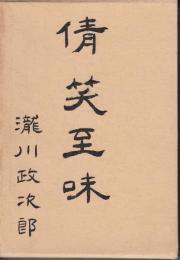 倩笑至味
瀧川政次郎